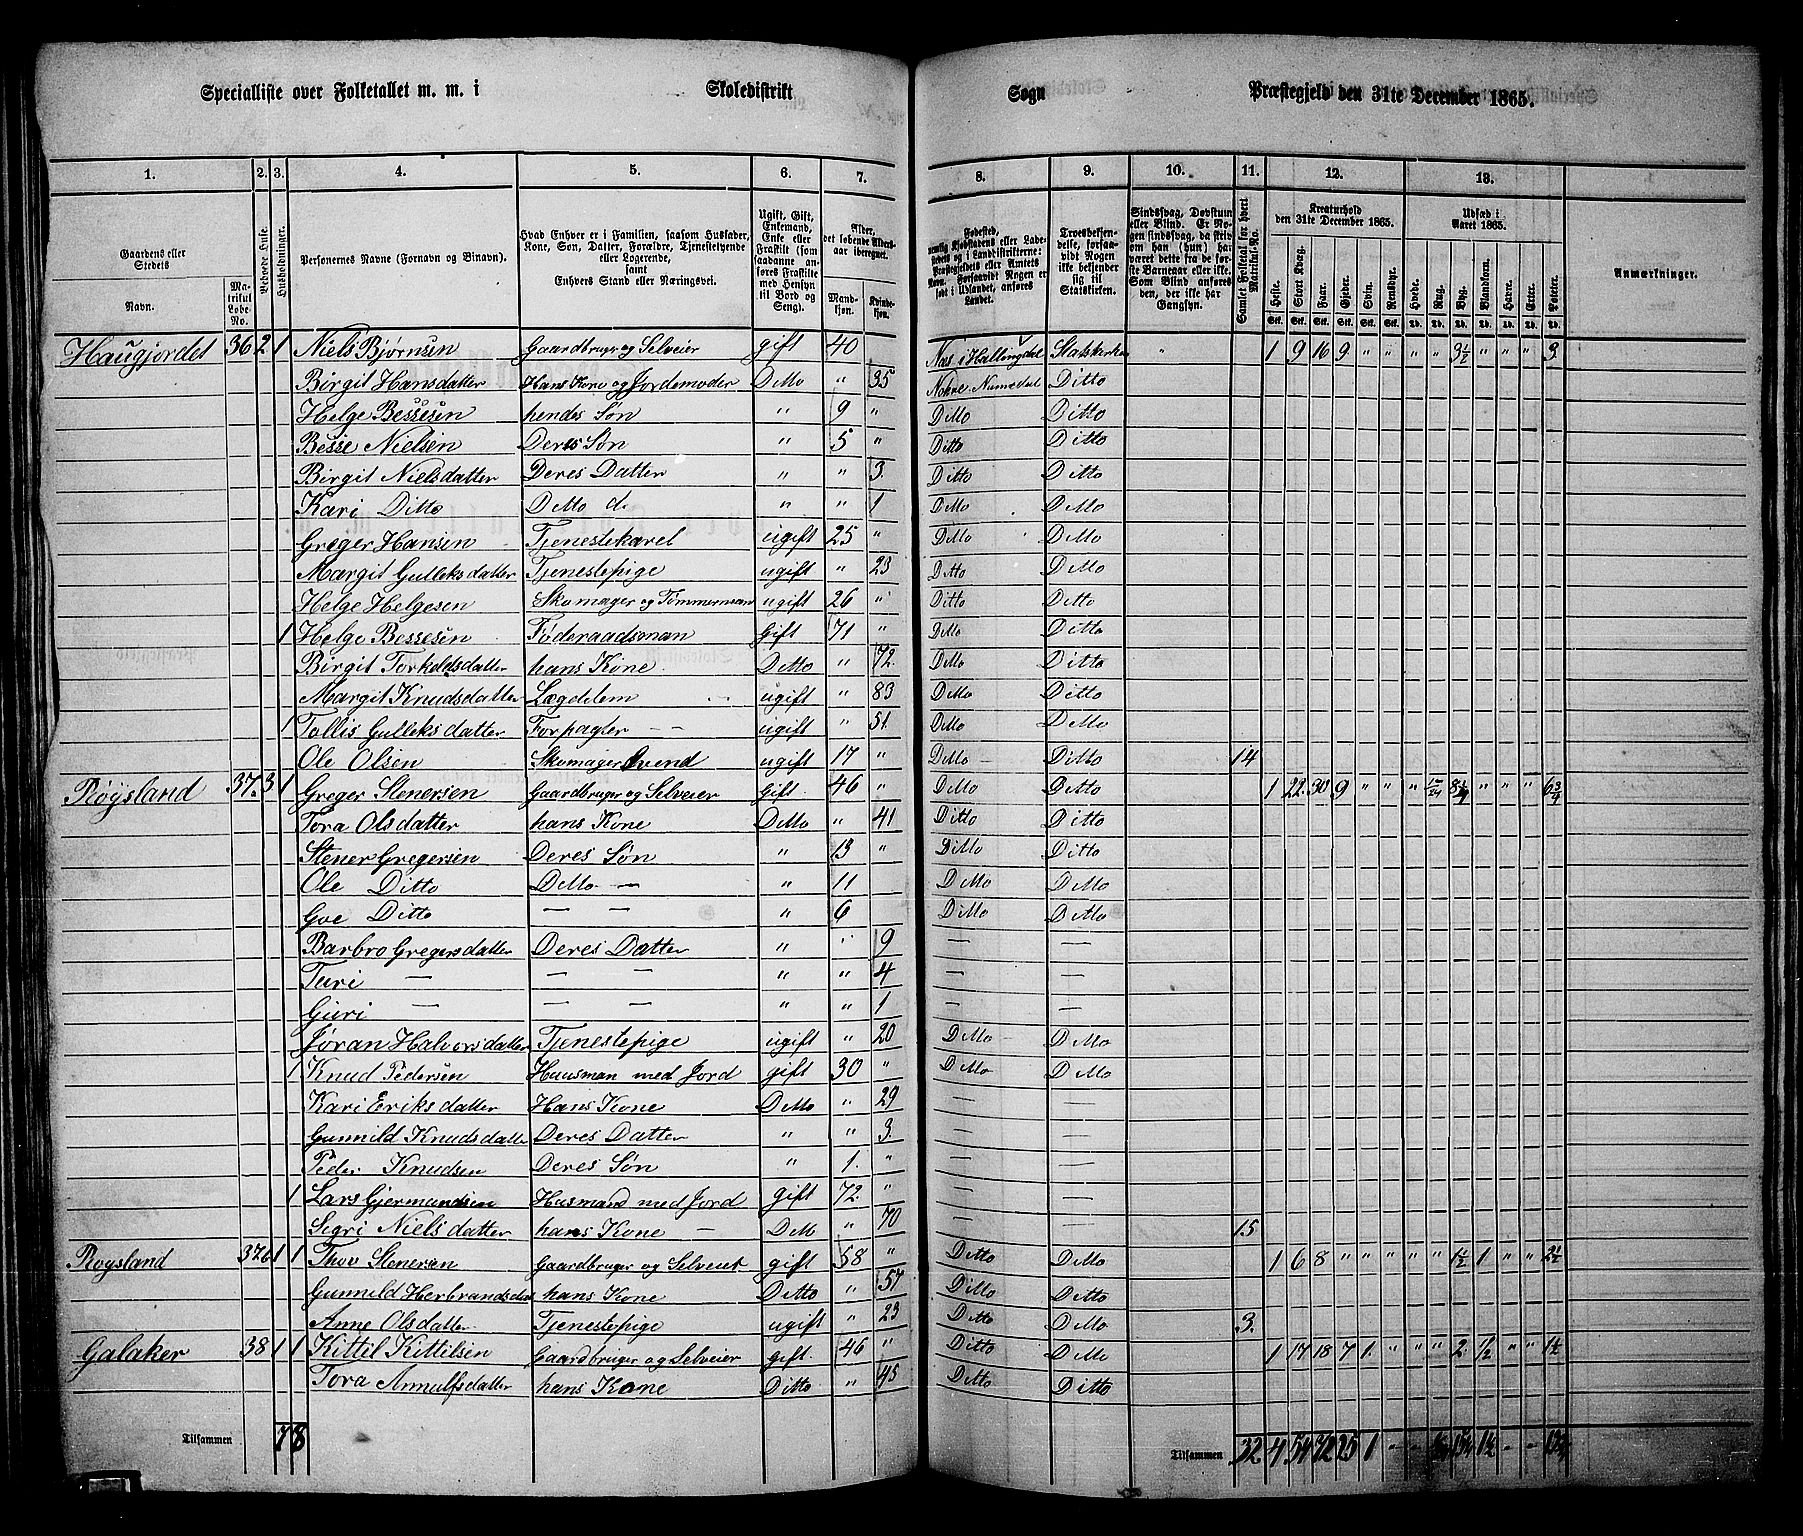 Specialliste over Folketallet m. m. i Skoledistrikt Sogn Præstegjeld den 31te December 1865.
1. 2. 3. 4. 5. 6. 7. 8. 9. 10. 11. 12. 13.
Gaardens eller Stedets Navn. Matrikul Løbe-No. Beboede Huse. Husholdninger. Personernes Navne (Fornavn og Binavn). Hvad Enhver er i Familien, saasom Husfader, Kone, Søn, Datter, Forældre, Tjenestetyende eller Logerende, samt Enhvers Stand eller Næringsvei. Ugift, Gift, Enkemand, Enke eller Fraskilt (saadanne anføres Fraskilte med Hensyn til Bord og Seng). Alder, det løbende Aldersaar iberegnet. Mandkjøn. Kvindekjøn.
Fødested, nemlig Kjøbstadens eller Ladestedets og i Landdistrikterne: Præstegjeldets eller Amtets Navn. Forsaavidt Nogen er født i Udlandet, anføres Landet. Troesbekjendelse, forsaavidt Nogen ikke bekjender sig til Statskirken. Sindssvag, Døvstum eller Blind. Er Nogen sindssvag, da skriv om han (hun) har været dette fra de første Barneaar eller ikke. Som Blind anføres den, der ikke har Gangsyn. Samlet Folketal for hvert Matrikul-No. Kreaturhold den 31te December 1865. Heste. Stort Kvæg. Faar. Gjeder. Svin. Rensdyr. Udsæd i Aaret 1865. Hvede. Rug. Byg. Blandkorn. Havre. Erter. Poteter. Anmærkninger.
Haugjordet 36 2 1 Niels Bjørnsen Gaardbruger og Selveier gift 40 Næs i Hallingdal Statskirken " 1 9 16 9 " " " " 3½ " " " 3
Birgit Hansdatter Hans Kone og Jordemoder Ditto " 35 Numedal Ditto
Helge Bessesen hendes Søn " 9 " Ditto Ditto
Besse Nielsen Deres Søn " 5 " Ditto Ditto
Birgit Nielsdatter Deres Datter " " 3. Ditto Ditto
Kari Ditto Ditto d. " " 1 Ditto Ditto
Greger Hansen Tjenestekarel ugift 25 " Ditto Ditto
Margit Gulleksdatter Tjenestepige ugift " 23 Ditto Ditto
Helge Helgesen Skomager og Tømmerman ugift 26 " Ditto Ditto
1 Helge Bessesen Føderaadsman Gift 71 " Ditto Ditto
Birgit Torkeldsdatter hans Kone Ditto " 72. Ditto Ditto
Margit Knudsdatter Lægdelem ugift " 83 Ditto Ditto
1 Tollis Gulleksdatter Forpagter — ugift " 51. Ditto Ditto
Ole Olsen Skomager Svend ugift 17 " Ditto Ditto 14
Røysland 37. 3 1 Greger Stenersen Gaardbruger og Selveier Gift 46 " Ditto Ditto 1 22. 30 9 " " " 8¼ " " " 6¾
Tora Olsdatter hans Kone Ditto " 41 Ditto Ditto
Stener Gregersen Deres Søn " 13 " Ditto Ditto
Ole Ditto Ditto — " 11 Ditto Ditto
Goe Ditto — — " 6 Ditto Ditto
Barbro Gregersdatter Deres Datter " " 9 — —
Turi — — — " " 4 — —
Guri — — — " " 1 — —
Jøran Halvorsdatter Tjenestepige ugift " 20 Ditto Ditto
1 Knud Pedersen Huusman med Jord gift 30 " Ditto Ditto
Kari Eriksdatter Hans Kone Ditto " 29 — —
Gunnild Knudsdatter Deres Datter " " 3. — —
Peder Knudsen Deres Søn " 1. " — —
1 Lars Gjermundsen Husmand med Jord gift 72. " — —
Sigri Nielsdatter hans Kone — Ditto " 70 — — 15
Røysland 37b 1 1 Thov Stenersen Gaardbruger og Selveiet gift 58 " Ditto Ditto 1 6 8 " " " " " 1½ 1 " " 2½
Gunnild Herbrandsdat hans Kone Ditto " 57 Ditto Ditto
Anne Olsdatter Tjenestepige ugift " 23 Ditto Ditto 3.
Galaker 38 1 1 Kittil Kittilsen Gaardbruger og Selveier gift 46 " Ditto Ditto 1 17 18 7 1. " " " 2 ½ " " 1½
Tora Annulfsdatter hans Kone Ditto " 45 Ditto Ditto
Tilsammen 7 8 Tilsammen 32 4 54 72 25 1 " " 1½ " "